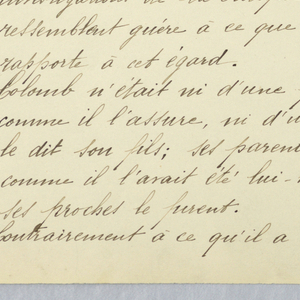 ressemblent guère à ce que
rapporte à cet égard.
Colomb n'était ni d'une
comme il l'assure, ni d'u
le dit son fils; ses paren
comme il l'avait été lui-
ses proches le furent.
Contrairement à ce qu'il a